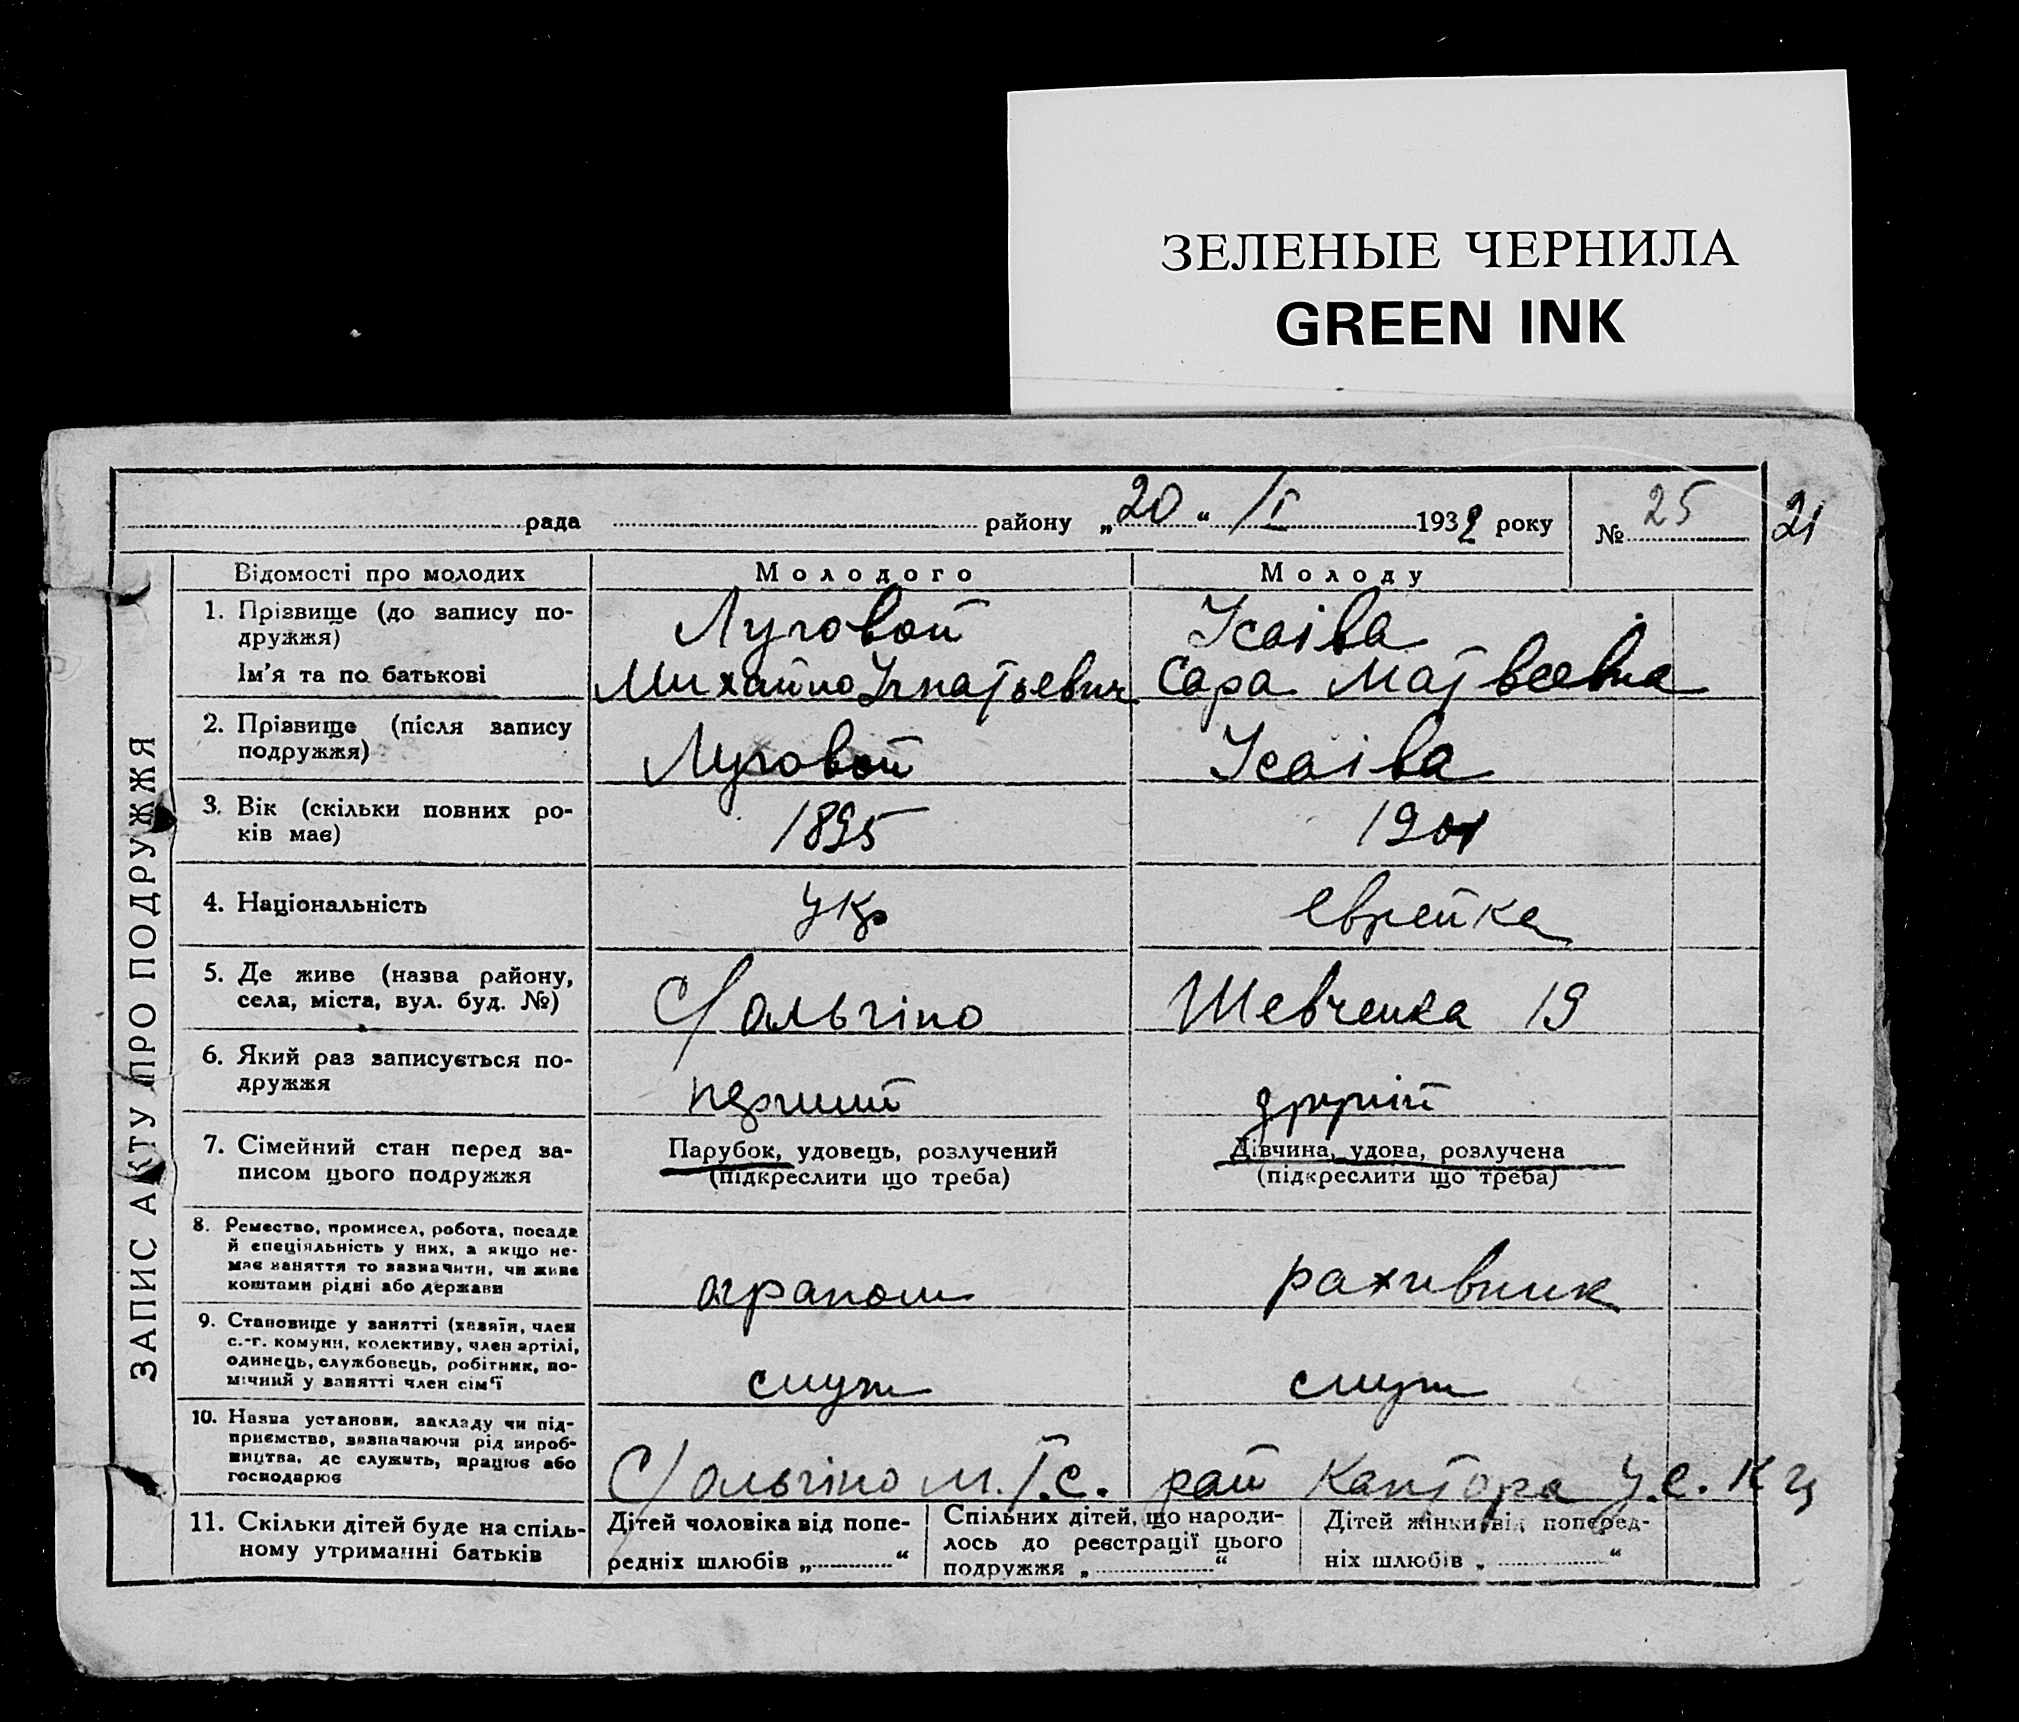 ЗЕЛЕНЫЕ ЧЕРНИЛА
GREEN INK
рада району „20“ /I 1932 року № 25 21
ЗАПИС АКТУ ПРО ПОДРУЖЖЯ
Відомості про молодих Молодого Молоду
1. Прізвище (до запису по-
дружжя)
Луговой Ісаіва
Ім'я та по батькові Михайло Ігнатьевич Сара Матвеевна
2. Прізвище (після запису
подружжя)
Луговой Ісаіва
3. Вік (скільки повних ро-
ків має)
1895 1901
4. Національність укр еврейка
5. Де живе (назва району,
села, міста, вул. буд. №)
С/Ольгіно Шевченка 19
6. Який раз записується по-
дружжя
перший другий
7. Сімейний стан перед за-
писом цього подружжя
Парубок, удовець, розлучений
(підкреслити що треба)
Дівчина, удова, розлучена
(підкреслити що треба)
8. Ремество, промисел, робота, посада
й спеціяльність у них, а якщо не-
має заняття то зазначити, чи живе
коштами рідні або держави
аграном рахивник
9. Становище у занятті (хазяїн, член
с.-г. комуни, колективу, член артілі,
одинець, службовець, робітник, по-
мічний у занятті член сім'ї
служ служ
10. Назва установи, закладу чи під-
приємства, зазначаючи рід вироб-
ництва, де служить, працює або
господарює
С/Ольгіно М.Т.С. рай Кантора У.С.К.Ц
11. Скільки дітей буде на спіль-
ному утриманні батьків
Дітей чоловіка від попе-
редніх шлюбів „ “
Спільних дітей, що народи-
лось до реєстрації цього
подружжя „ “
Дітей жінки від поперед-
ніх шлюбів „ “